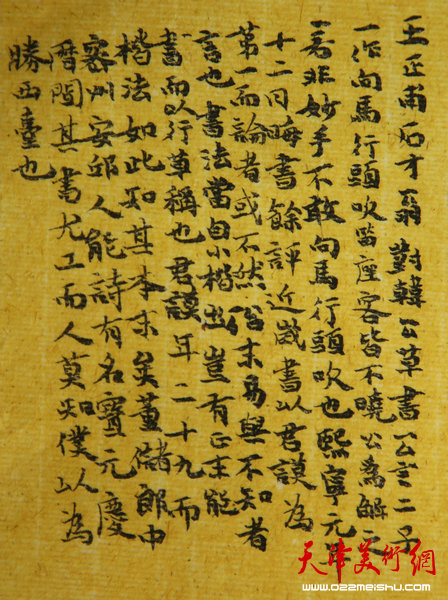 王正甫石才翁對韓公草書公言二子
一作向馬行頭吹笛座客皆不曉公為解之
若非妙手不敢向馬行頭吹也熙寧元年
十二月晦書餘評近歲書以君謨為
第一而論者或不然殆未易與不知者
言也書法當自小楷出豈有正未能
書而以行草稱也君謨年二十九而
楷法如此知其本末矣董儲郎中
密州安邱人能詩有名寶元慶
曆間其書尤工而人莫知僕以為
勝西臺也
天津美術網
www.022meishu.com